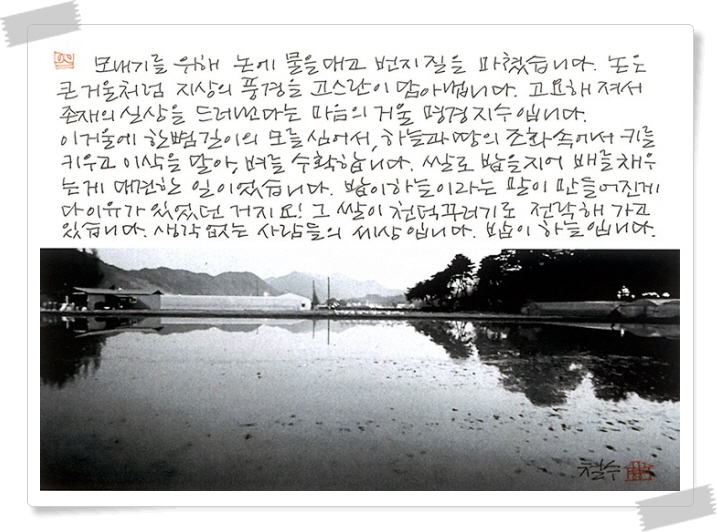 모내기를 위해 논에 물을 대고 번지질을 마쳤습니다. 논은
큰 거울처럼 지상의 풍경을 고스란이 담아냅니다. 고요해져서
존재의 실상을 드러낸다는 마음의 거울 명경지수입니다.
이 거울에 한뼘길이의 모를 심어서, 하늘과 땅의 조화속에서 키를
키우고 이삭을 말아, 벼를 수확합니다. 쌀로 밥을 지어 배를 채우
는게 대견한 일이었습니다. 밥이 하늘이라는 말이 만들어진게
다 이유가 있었던 거지요! 그 쌀이 천덕꾸러기로 전락해 가고
있습니다. 생각 없는 사람들의 세상입니다. 밥이 하늘입니다.
철수